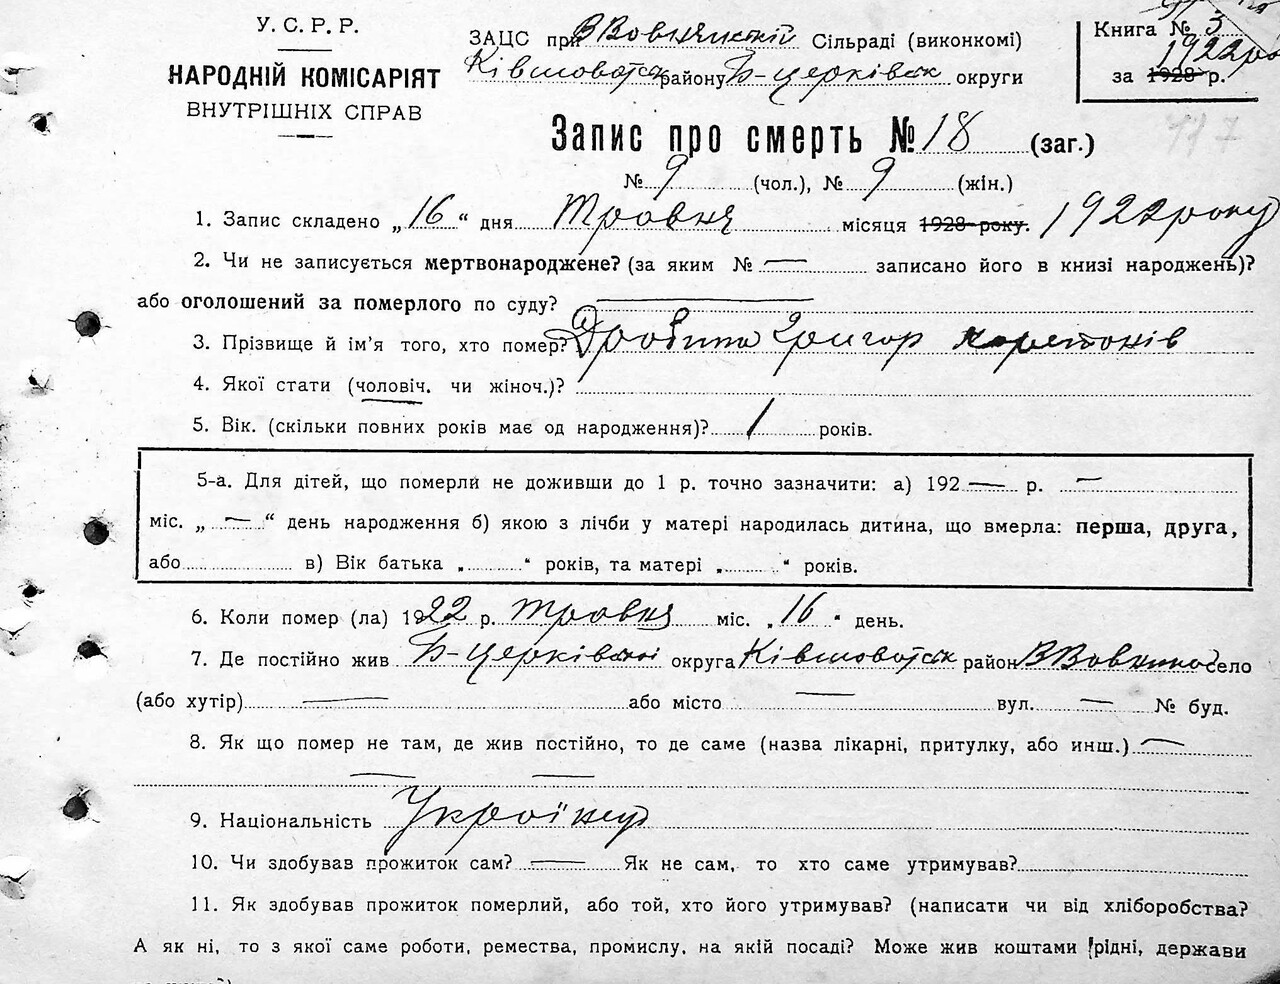 У. С. Р. Р.
НАРОДНІЙ КОМІСАРІЯТ
ВНУТРІШНІХ СПРАВ
ЗАЦС при Сільраді (виконкомі)
району Б-церківськ округи
Книга № 3
1922 ро
за 1928 р.
117
Запис про смерть № 18 (заг.)
№ 9 (чол.), № 9 (жін.)
1. Запис складено „16“ дня Травня місяця 1928 року. 1922 року
2. Чи не записується мертвонароджене? (за яким № — записано його в книзі народжень)?
або оголошений за померлого по суду? —
3. Прізвище й ім'я того, хто помер? Григор
4. Якої стати (чоловіч. чи жіноч.)?
5. Вік. (скільки повних років має од народження)? 1 років.
5-а. Для дітей, що померли не доживши до 1 р. точно зазначити: а) 192 — р. —
міс. „ — “ день народження б) якою з лічби у матері народилась дитина, що вмерла: перша, друга,
або в) Вік батька „ “ років, та матері „ “ років.
6. Коли помер (ла) 1922 р. травня міс. „16“ день.
7. Де постійно жив Б-церківської округа район село
(або хутір) — або місто — вул. — № буд.
8. Як що помер не там, де жив постійно, то де саме (назва лікарні, притулку, або инш.) —
— —
9. Національність Українец
10. Чи здобував прожиток сам? — Як не сам, то хто саме утримував?
11. Як здобував прожиток померлий, або той, хто його утримував? (написати чи від хліборобства?
А як ні, то з якої саме роботи, ремества, промислу, на якій посаді? Може жив коштами рідні, держави